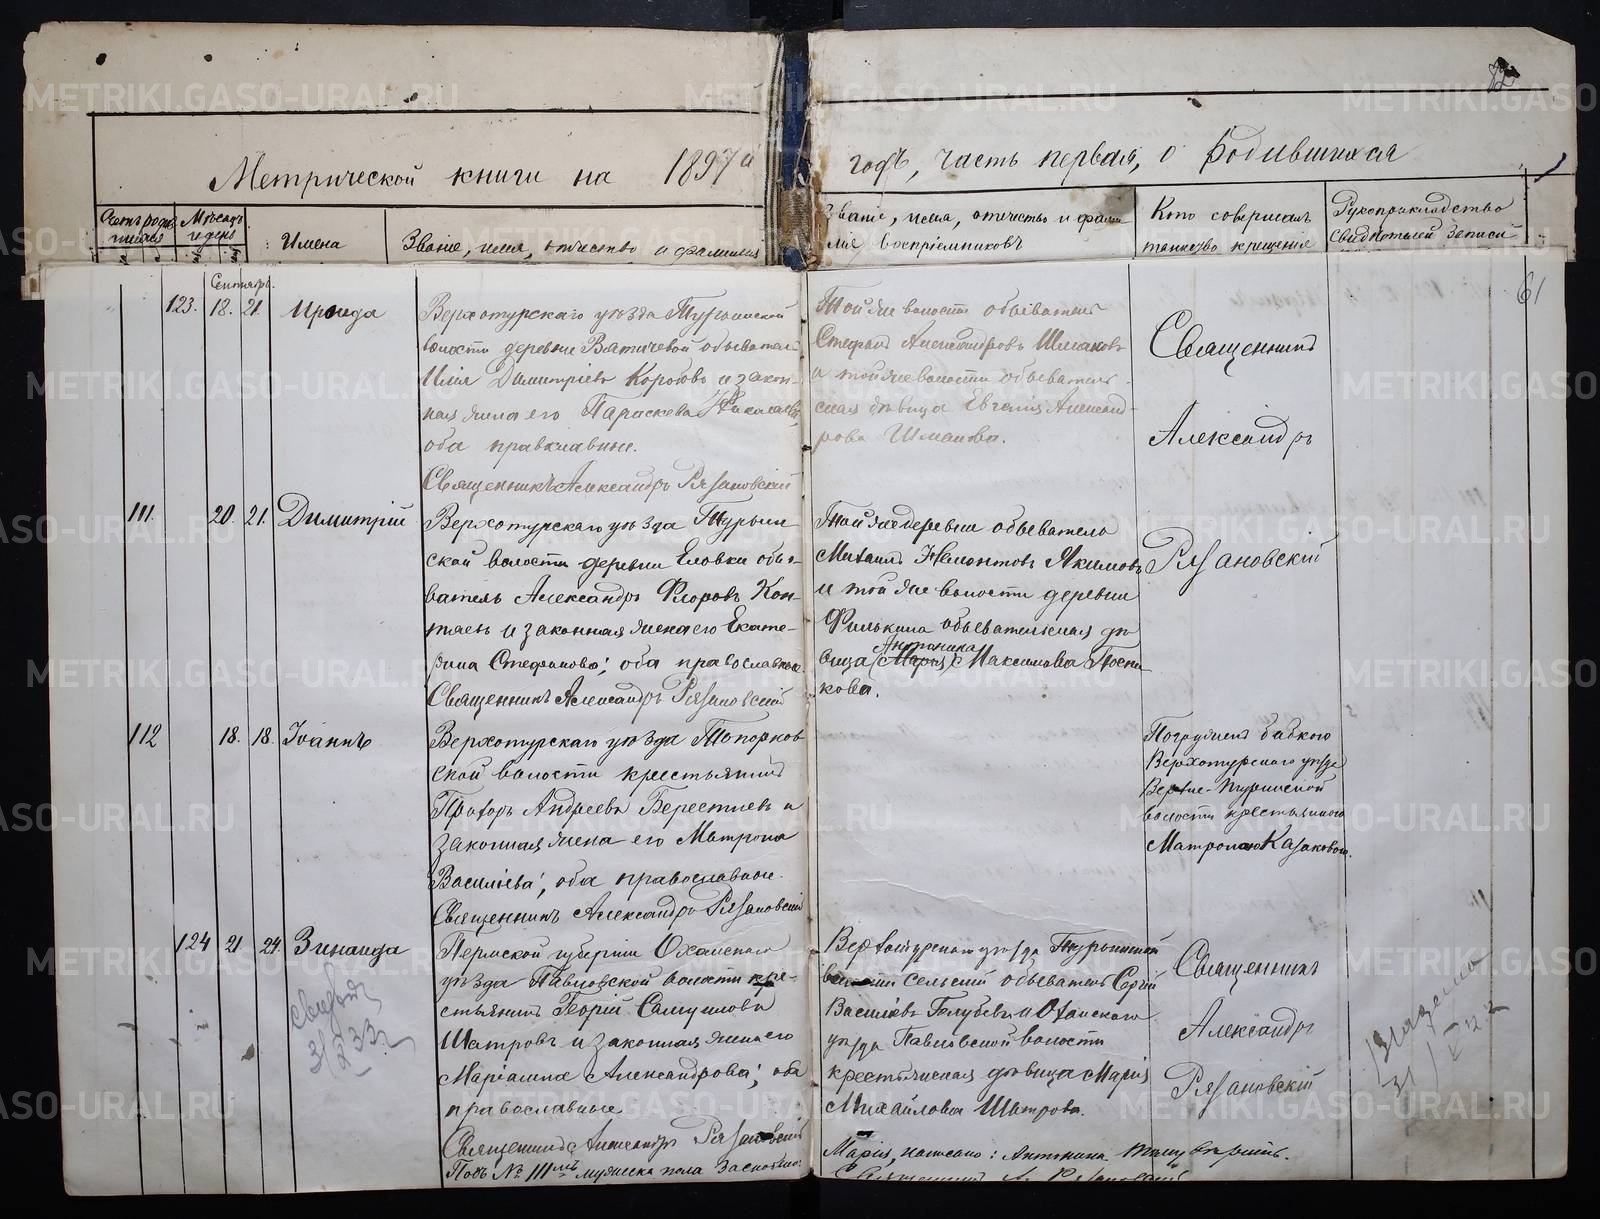 82
Метрической книги на 1897й
годъ, часть первая, о Родившихся
Счетъ родив
шихся
Мѣсяцъ
и день
Имена
Званіе, имя, отчество и фамилия
Званіе, имя, отчество и фами
лія воспріемниковъ
Кто совершалъ
таинство крещенія
Рукоприкладство
свидѣтелей записи
61
Сентябрь.
123. 18. 21. Ираида
Верхотурскаго уѣзда Турьинской
волости деревни обыватель
Илія Димитріевъ Коротовъ и закон-
ная жена его Параскева Николаева,
оба православные.
Священникъ Александръ Рязановскій
Той же волости обыватель
Стефанъ Александровъ Шмаковъ
и той же волости обыватель-
ская дѣвица Евгенія Александ-
рова Шмакова.
Священникъ
Александръ
Рязановскій
111. 20. 21. Димитрій
Верхотурскаго уѣзда Турьин-
ской волости деревни Еловки обы-
ватель Александръ Флоровъ Кон-
тяевъ и законная жена его Екате-
рина Стефанова; оба православные
Священникъ Александръ Рязановскій
Той же деревни обыватель
Михаилъ Якимовъ
и той же волости деревни
Филькина обывательская дѣ-
Антонина
вица (Марія) Максимова Постни-
кова.
112 18. 18. Іоаннъ
Верхотурскаго уѣзда Топорков
ской волости крестьянинъ
Андреевъ Берестневъ и
законная жена его Матрона
Василіева; оба православные.
Священникъ Александръ Рязановскій
Погруженъ бабкою
Верхотурскаго уѣзда
Верхне-Туринской
волости крестьянкою
Матроною Казаковою.
124 21. 24. Зинаида
Пермской губерніи Оханскаго
уѣзда Павловской волости кре-
стьянинъ Георгій Самуиловъ
Шатровъ и законная жена его
Маріамна Александрова; оба
православные
Священникъ Александръ Рязановскій
Верхотурскаго уѣзда Турьинской
волости сельскій обыватель Сергій
Василіевъ Голубевъ и Оханскаго
уѣзда Павловской волости
крестьянская дѣвица Марія
Михайлова Шатрова.
Священникъ
Александръ
Рязановскій
Подъ № 111мъ мужеска пола
Марія, написано: Антонина
Священникъ А. Рязановскій
METRIKI.GASO-URAL.RU